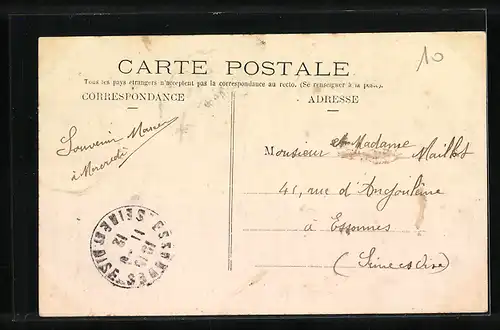 10
CARTE POSTALE
Tous les pays étrangers n'acceptent pas la correspondance au recto. (Se renseigner à la poste).
CORRESPONDANCE
ADRESSE
Souvenir
à Mercredi
Monsieur et Madame Maillot
41, rue d'Angoulême
à Essonnes
(Seine et Oise)
ESSONNES
SEINE ET OISE